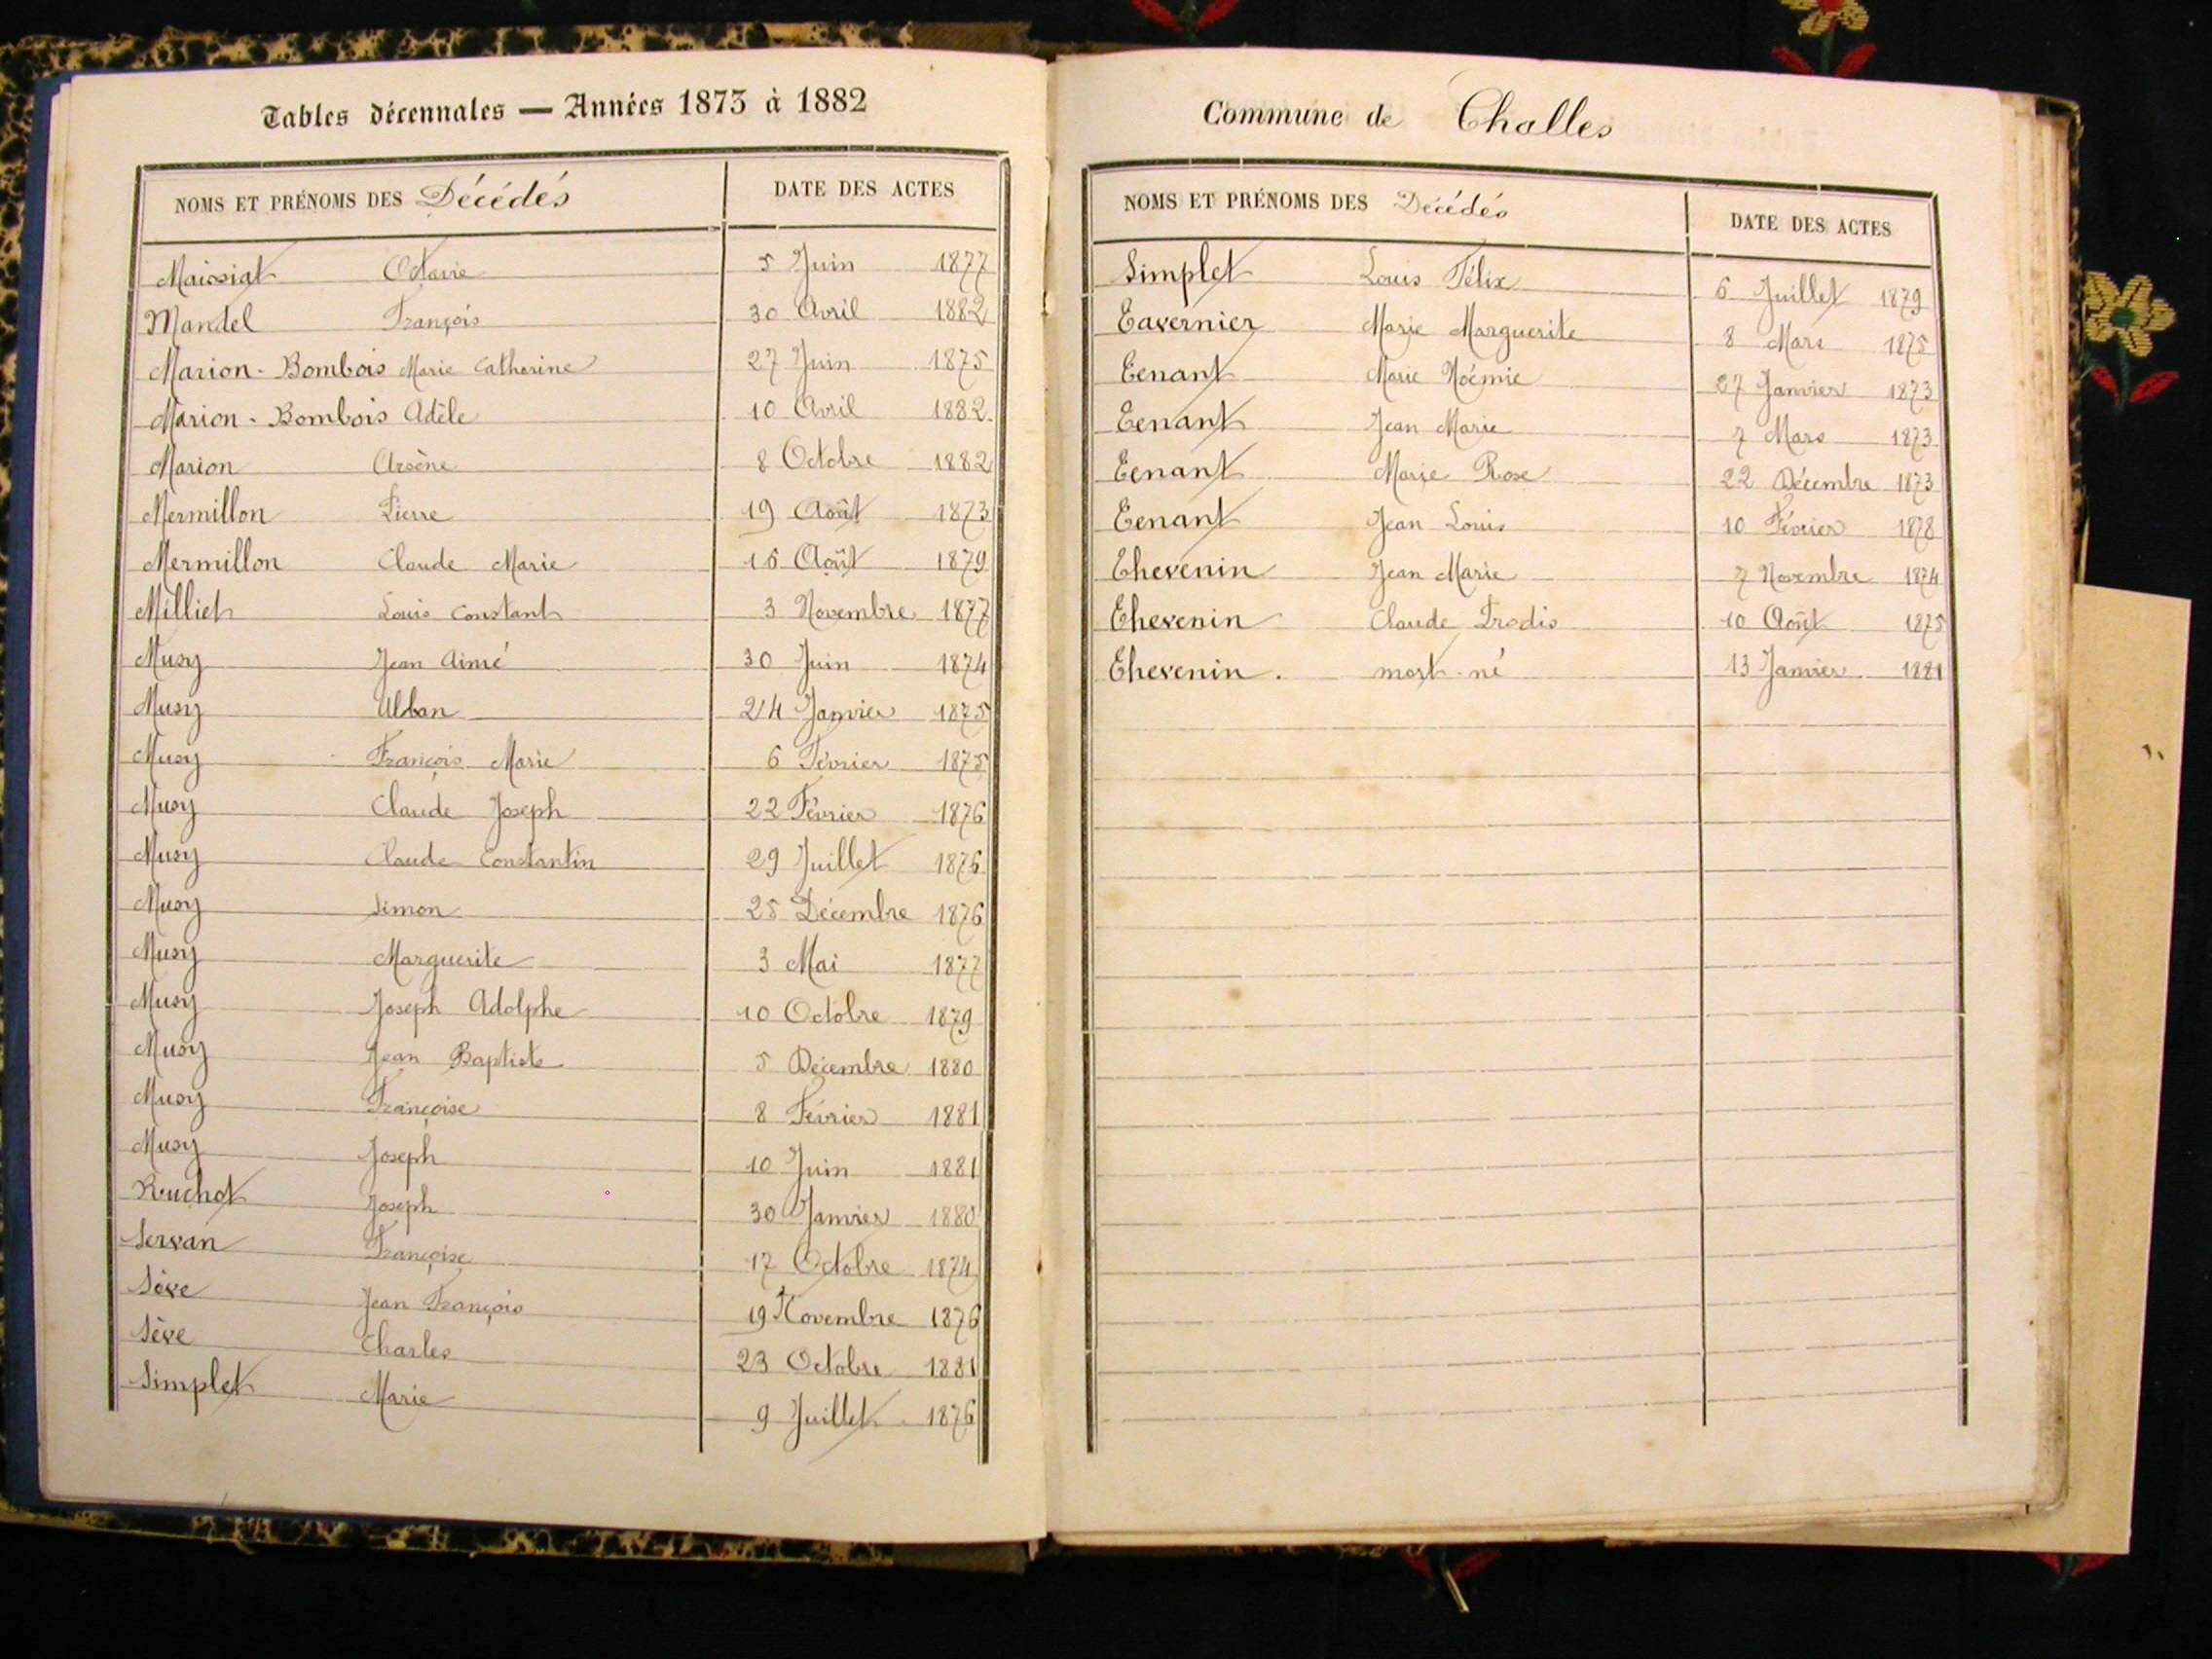 Tables décennales — Années 1873 à 1882
NOMS ET PRÉNOMS DES Décédés DATE DES ACTES
Maissiat Octavie 5 Juin 1877
Mandel François 30 Avril 1882
Marion-Bombois Marie Catherine 27 Juin 1875
Marion-Bombois Adèle 10 Avril 1882
Marion Arsène 8 Octobre 1882
Mermillon Pierre 19 Août 1873
Mermillon Claude Marie 15 Août 1879
Milliet Louis Constant 3 Novembre 1877
Musy Jean Aimé 30 Juin 1874
Musy Ulban 24 Janvier 1875
Musy François Marie 6 Février 1875
Musy Claude Joseph 22 Février 1876
Musy Claude Constantin 29 Juillet 1876
Musy Simon 25 Décembre 1876
Musy Marguerite 3 Mai 1877
Musy Joseph Adolphe 10 Octobre 1879
Musy Jean Baptiste 5 Décembre 1880
Musy Françoise 8 Février 1881
Musy Joseph 10 Juin 1881
Ruchot Joseph 30 Janvier 1880
Servan Françoise 17 Octobre 1874
Sève Jean François 19 Novembre 1876
Sève Charles 23 Octobre 1881
Simplet Marie 9 Juillet 1876
Commune de Challes
NOMS ET PRÉNOMS DES Décédés DATE DES ACTES
Simplet Louis Félix 6 Juillet 1879
Tavernier Marie Marguerite 8 Mars 1875
Tenant Marie Noémie 27 Janvier 1873
Tenant Jean Marie 7 Mars 1873
Tenant Marie Rose 22 Décembre 1873
Tenant Jean Louis 10 Février 1878
Thevenin Jean Marie 7 Novembre 1874
Thevenin Claude Prodis 10 Août 1875
Thevenin. mort-né 13 Janvier 1881